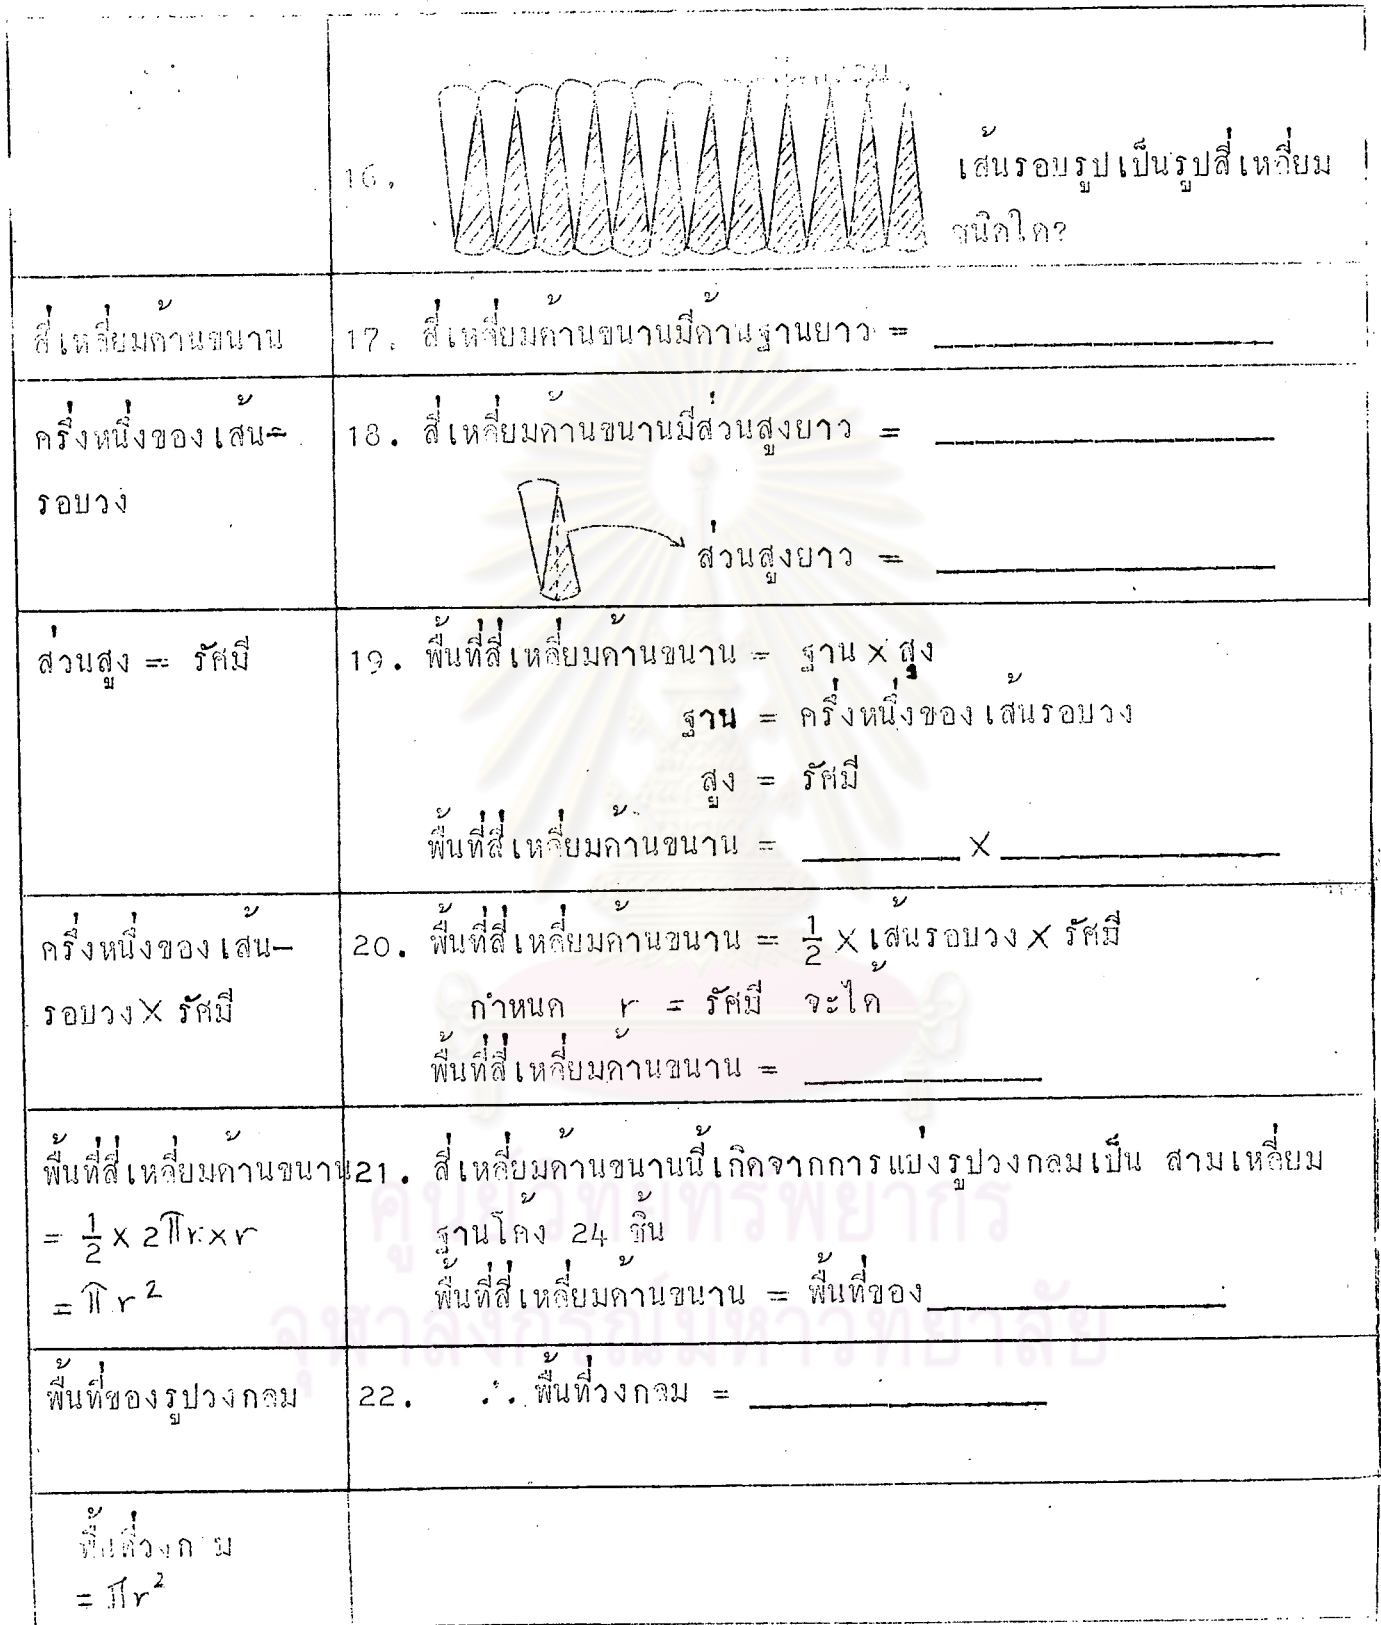 16. เส้นรอบรูปเป็นรูปสี่เหลี่ยม
ชนิดใด?
สี่เหลี่ยมด้านขนาน
17. สี่เหลี่ยมด้านขนานมีด้านฐานยาว = ____________
ครึ่งหนึ่งของเส้น-
รอบวง
18. สี่เหลี่ยมด้านขนานมีส่วนสูงยาว = ____________
ส่วนสูงยาว = ____________
ส่วนสูง = รัศมี
19. พื้นที่สี่เหลี่ยมด้านขนาน = ฐาน × สูง
ฐาน = ครึ่งหนึ่งของเส้นรอบวง
สูง = รัศมี
พื้นที่สี่เหลี่ยมด้านขนาน = ______ × __________
ครึ่งหนึ่งของเส้น-
รอบวง × รัศมี
20. พื้นที่สี่เหลี่ยมด้านขนาน = 1/2 × เส้นรอบวง × รัศมี
กำหนด r = รัศมี จะได้
พื้นที่สี่เหลี่ยมด้านขนาน = _________
พื้นที่สี่เหลี่ยมด้านขนาน
= 1/2 × 2πr × r
= πr²
21. สี่เหลี่ยมด้านขนานนี้เกิดจากการแบ่งรูปวงกลมเป็น สามเหลี่ยม
ฐานโค้ง 24 ชิ้น
พื้นที่สี่เหลี่ยมด้านขนาน = พื้นที่ของ___________
พื้นที่ของรูปวงกลม
22. ∴ พื้นที่วงกลม = ___________
พื้นที่วงกลม
= πr²
ศูนย์วิทยทรัพยากร
จุฬาลงกรณ์มหาวิทยาลัย